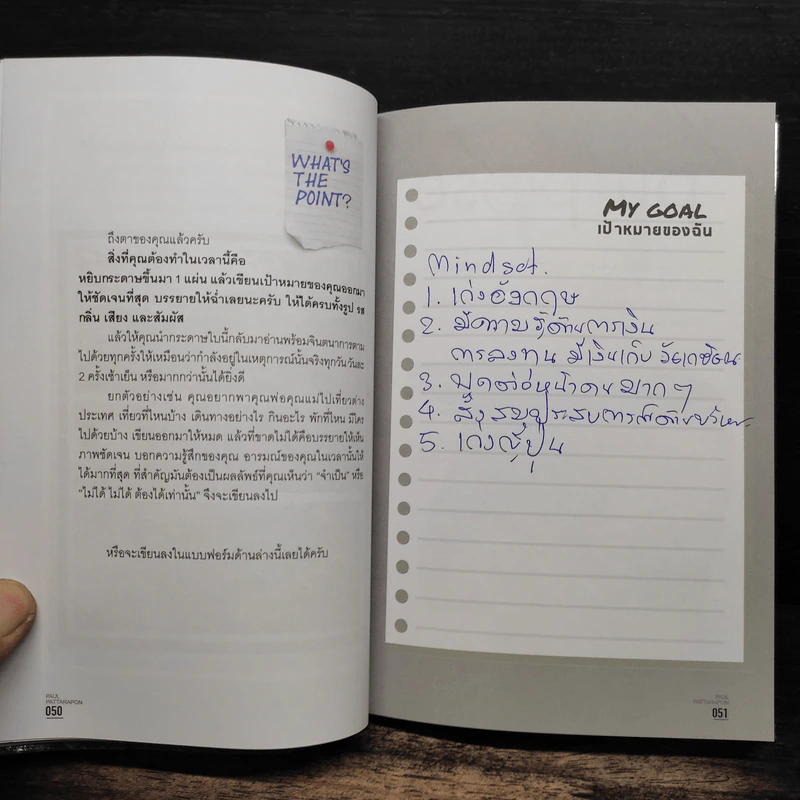 WHAT'S
THE
POINT?
ถึงตาของคุณแล้วครับ
สิ่งที่คุณต้องทำในเวลานี้คือ
หยิบกระดาษขึ้นมา 1 แผ่น แล้วเขียนเป้าหมายของคุณออกมา
ให้ชัดเจนที่สุด บรรยายให้ฉ่ำเลยนะครับ ให้ได้ครบทั้งรูป รส
กลิ่น เสียง และสัมผัส
แล้วให้คุณนำกระดาษใบนี้กลับมาอ่านพร้อมจินตนาการตาม
ไปด้วยทุกครั้งให้เหมือนว่ากำลังอยู่ในเหตุการณ์นั้นจริงทุกวัน วันละ
2 ครั้งเช้าเย็น หรือมากกว่านั้นได้ยิ่งดี
ยกตัวอย่างเช่น คุณอยากพาคุณพ่อคุณแม่ไปเที่ยวต่าง
ประเทศ เที่ยวที่ไหนบ้าง เดินทางอย่างไร กินอะไร พักที่ไหน มีใคร
ไปด้วยบ้าง เขียนออกมาให้หมด แล้วที่ขาดไม่ได้คือบรรยายให้เห็น
ภาพชัดเจน บอกความรู้สึกของคุณ อารมณ์ของคุณในเวลานั้นให้
ได้มากที่สุด ที่สำคัญมันต้องเป็นผลลัพธ์ที่คุณเห็นว่า "จำเป็น" หรือ
"ไม่ได้ ไม่ได้ ต้องได้เท่านั้น" จึงจะเขียนลงไป
หรือจะเขียนลงในแบบฟอร์มด้านล่างนี้เลยได้ครับ
PAUL
PATTARAPON
050
MY GOAL
เป้าหมายของฉัน
Mindset.
1. เก่งอังกฤษ
2. มีความรู้ด้านการเงิน
การลงทุน มีเงินเก็บ
3. พูดต่อหน้าคนมากๆ
4. สั่งสมประสบการณ์ด้าน
5. เก่งญี่ปุ่น
PAUL
PATTARAPON
051